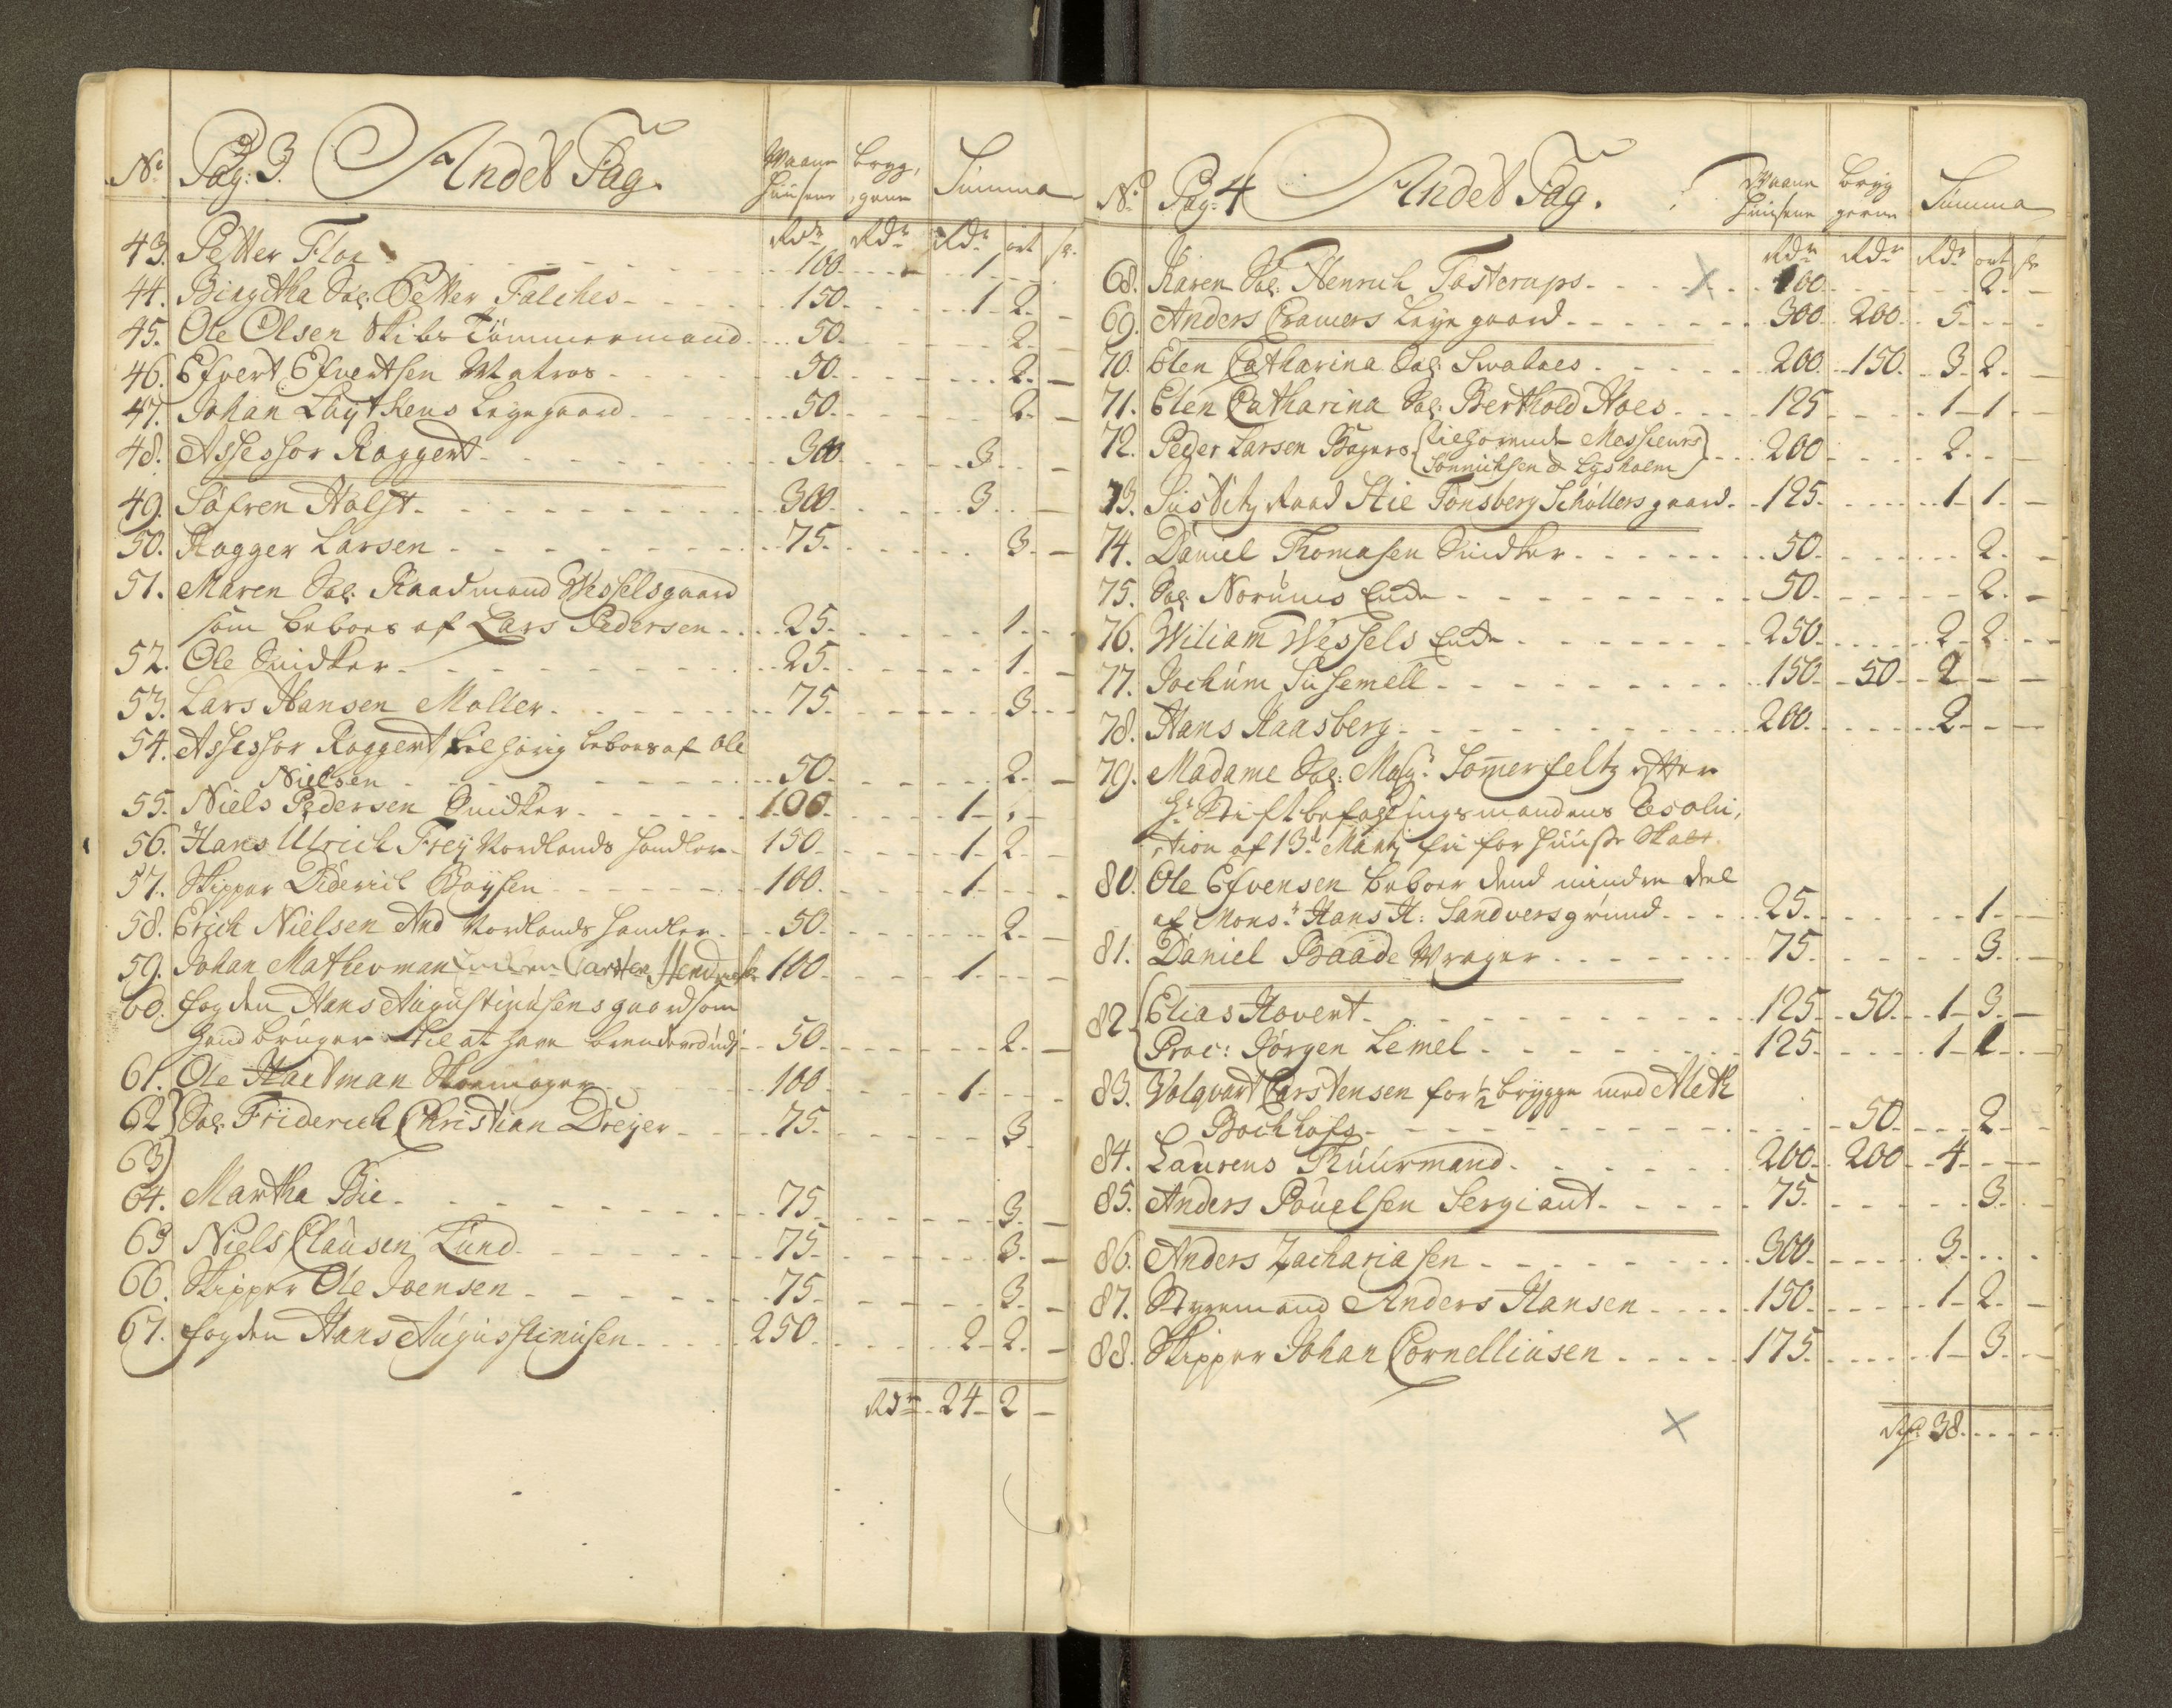 No Pag: 3. Andet Fag. Waane Brÿg,
Huusene ,gene Summa
Rdr Rdr Rdr ort s.
43. Petter Floe 100 1
44. Birgitha Sal: Petter Falches 150 1 2
45. Ole Olsen Skibs Tömmermand 50 2
46. Efvert Efvertsen Matros 50 2
47. Johan Lüytkens Leyegaard 50 2
48. Assessor Roggert 300 3
49. Söfren Holst 300 3
50. Rogger Larsen 75 3
51. Maren Sal: Raadmand Wesselsgaard
som beboes af Lars Pedersen 25 1
52. Ole Snidker 25 1
53. Lars Hansen Moller 75 3
54. Assessor Roggert tilhörig beboes af Ole
Nielsen 50 2
55. Niels Pedersen Snidker 100 1
56. Hans Ulrich Freÿ Nordlands Handler 150 1 2
57. Skipper Diderich Boÿsen 100 1
58. Erich Nielsen And Nordlands Handler 50 2
59. Johan Matheuman Carsten Hendrich 100 1
60. Fogden Hans Augustinusens gaard som
hand bruger til at have brendeved udj 50 2
61. Ole Hartman Skoemager 100 1
62 Sal: Friderich Christian Dreÿer 75 3
63
64. Martha Bie 75 3
65 Niels Clausen Lund 75 3
66. Skipper Ole Joensen 75 3
67. Fogden Hans Augusstinusen 250 2 2
Rdr 24 2
No Pag: 4 Andet Fag. Waane Brÿg
Huusene gerne Summa
Rdr Rdr Rdr ort s
68. Karen Sal: Henrich Tosterups 100 2
69. Anders Cramers Leye gaard 300 200 5
70. Elen Catharina Sal: Swabaes 200 150 3 2
71. Elen Catharina Sal: Berthold Hoes 125 1 1
72. Peder Larsen Bagers (tilhörende Messieurs
Sönnichsen & Lysholm) 200 2
73. Justitz Raad Stie Tonsberg Schöllers gaard 125 1 1
74. Daniel Thomasen Snidker 50 2
75. Sal: Norums Encke 50 2
76. Wiliam Wessels Encke 250 2 2
77. Jochum Susemell 150 50 2
78. Hans Raasberg 200 2
79. Madame Sal: Magr Somerfeltz efter
Hr Stiftbefahlingsmandens Resolu,
,tion af 13d Martj fri for Huuse Skatt
80. Ole Efvensen beboer dend mindre deel
af Monsr Hans H: Sandversgrund 25 1
81. Daniel Baade Wrager 75 3
82 Elias Hovert 125 50 1 3
Proc: Jörgen Lemel 125 1 1
83. Volqvart Carstensen for 1/2 brÿgge med Aleth
Bochhofs 50 2
84. Laurens Thuurmand 200 200 4
85. Anders Pouelsen Sergiant 75 3
86. Anders Zachariasen 300 3
87. Stÿremand Anders Hansen 150 1 2
88. Skipper Johan Corneliusen 175 1 3
Rdr 38